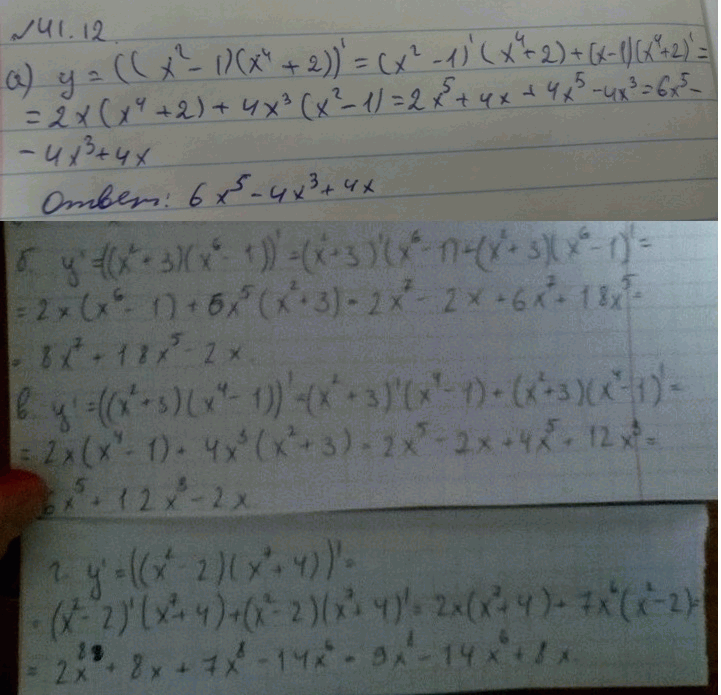 №41.12
а) y = ((x²-1)(x⁴+2))' = (x²-1)'(x⁴+2)+(x-1)(x⁴+2)'=
=2x(x⁴+2)+4x³(x²-1)=2x⁵+4x+4x⁵-4x³=6x⁵-
-4x³+4x
Ответ: 6x⁵-4x³+4x
б. y'=((x²+3)(x⁶-1))'=(x²+3)'(x⁶-1)+(x²+3)(x⁶-1)'=
=2x(x⁶-1)+6x⁵(x²+3)=2x⁷-2x+6x⁷+18x⁵=
=8x⁷+18x⁵-2x
в. y'=((x²+3)(x⁴-1))'=(x²+3)'(x⁴-1)+(x²+3)(x⁴-1)'=
=2x(x⁴-1)+4x³(x²+3)=2x⁵-2x+4x⁵+12x³=
6x⁵+12x³-2x
г. y'=((x²-2)(x⁷+4))'=
=(x²-2)'(x⁷+4)+(x²-2)(x⁷+4)'=2x(x⁷+4)+7x⁶(x²-2)=
=2x⁸+8x+7x⁸-14x⁶=9x⁸-14x⁶+8x